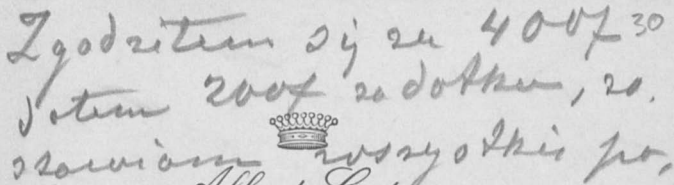 Zgodziłem się za 400f 30
dałem 200f zadatku, zo
stawiam wszystkie po,